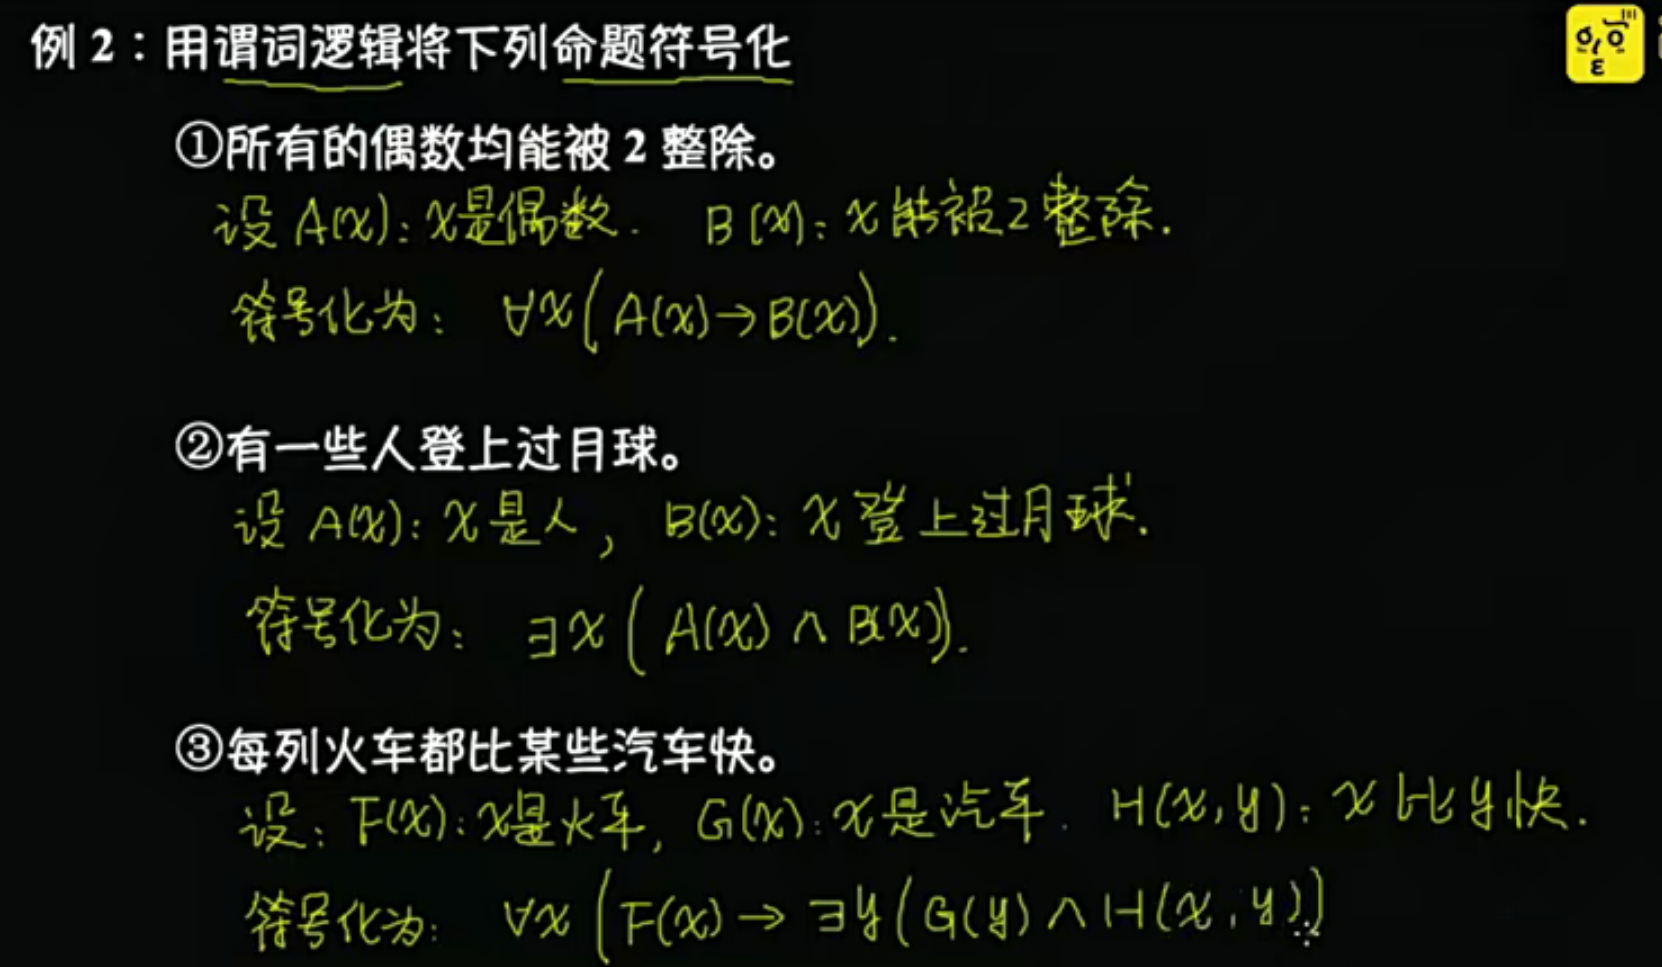 例 2：用谓词逻辑将下列命题符号化
①所有的偶数均能被 2 整除。
设 A(x)：x是偶数． B(x)：x能被2整除．
符号化为： ∀x(A(x)→B(x))．
②有一些人登上过月球。
设 A(x)：x是人， B(x)：x登上过月球．
符号化为： ∃x(A(x)∧B(x))．
③每列火车都比某些汽车快。
设：F(x)：x是火车，G(x)：x是汽车． H(x,y)：x比y快．
符号化为： ∀x(F(x)→∃y(G(y)∧H(x,y))